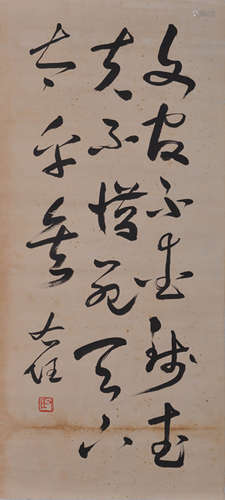 文官不愛錢武
夫不惜死天下
太平矣
右任